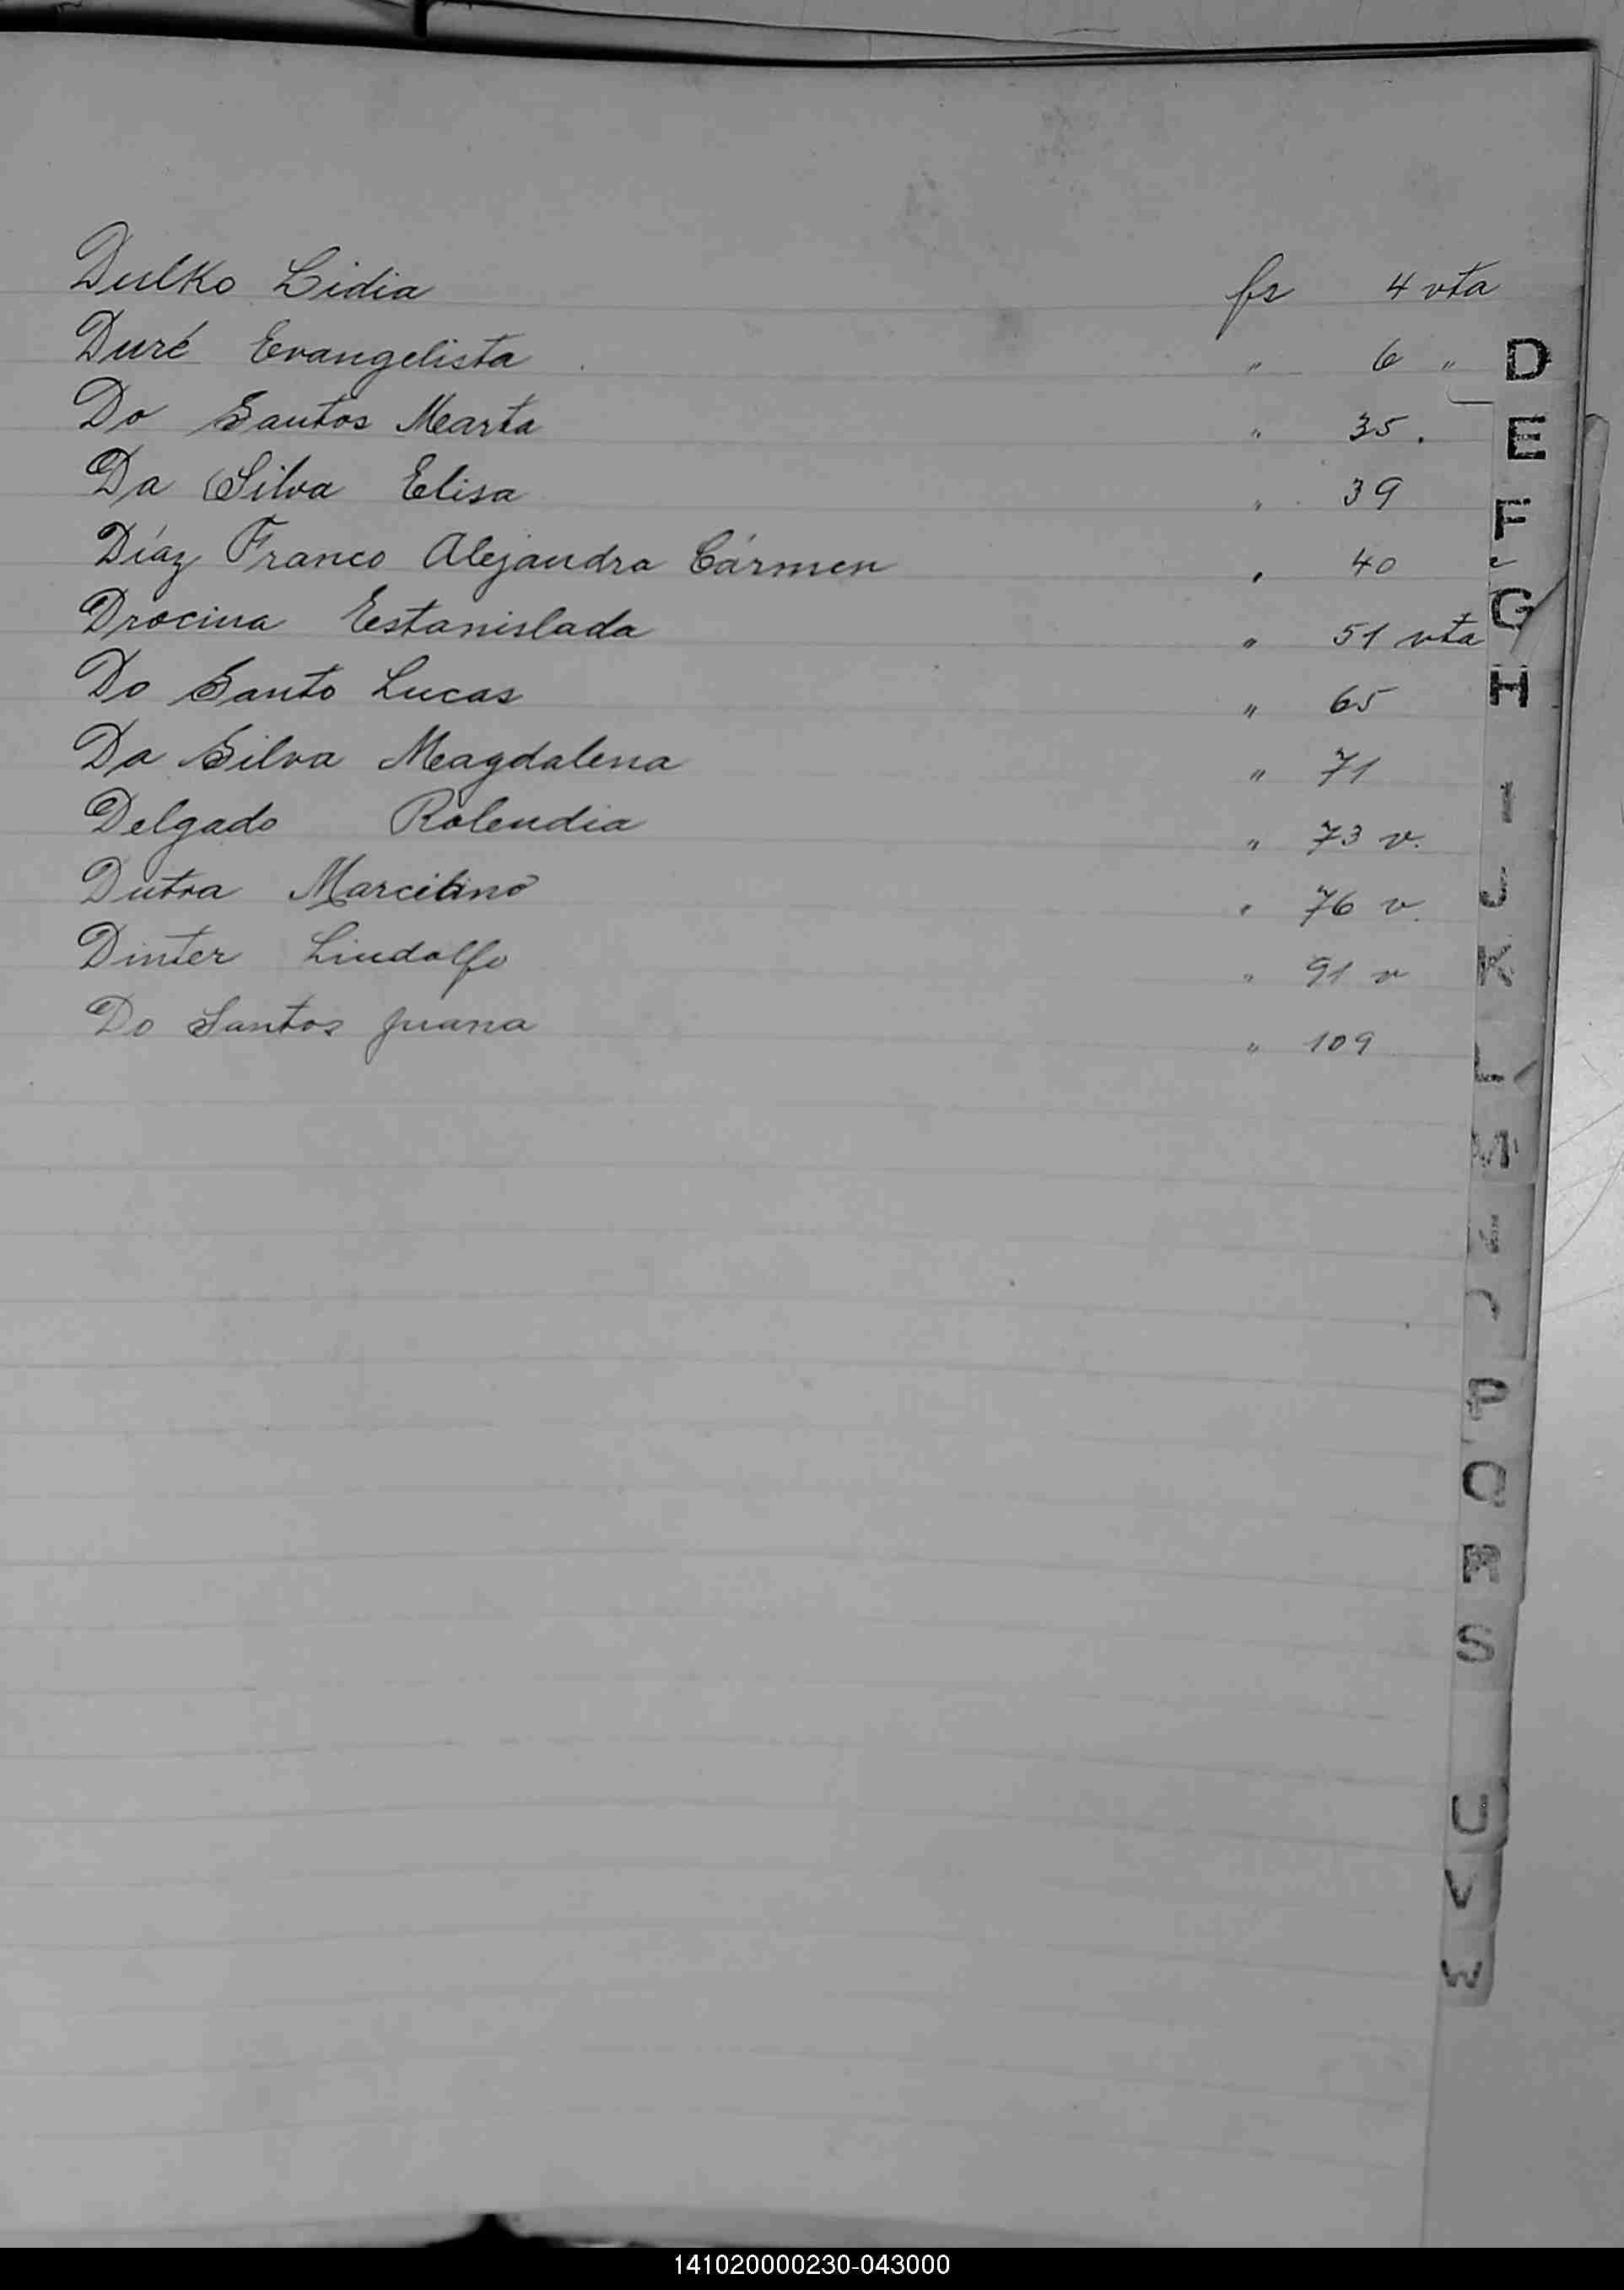 Dulko Lidia fs 4 vta
Duré Evangelista " 6 "
Do Santos Marta " 35.
Da Silva Elisa " 39
Díaz Franco Alejandra Cármen " 40
Drocina Estanislada " 51 vta
Do Santo Lucas " 65
Da Silva Magdalena " 71
Delgado Rolendia " 73 v.
Dutra Marcelino " 76 v.
Dinter Lindolfo " 91 v
Do Santos Juana " 109
D
E
F
G
H
I
J
K
L
M
P
Q
R
S
U
V
W
141020000230-043000